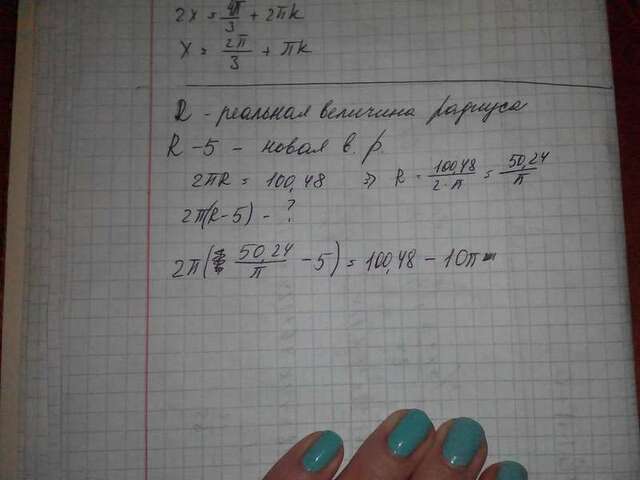 2x = 4π/3 + 2πk
x = 2π/3 + πk
R - реальная величина радиуса
R-5 - новая в. р.
2πR = 100,48 ⇒ R = 100,48/2·π = 50,24/π
2π(R-5) - ?
2π( 50,24/π - 5) = 100,48 - 10π